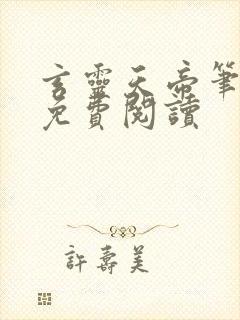 言靈天帝筆
免費閱讀
許壽美